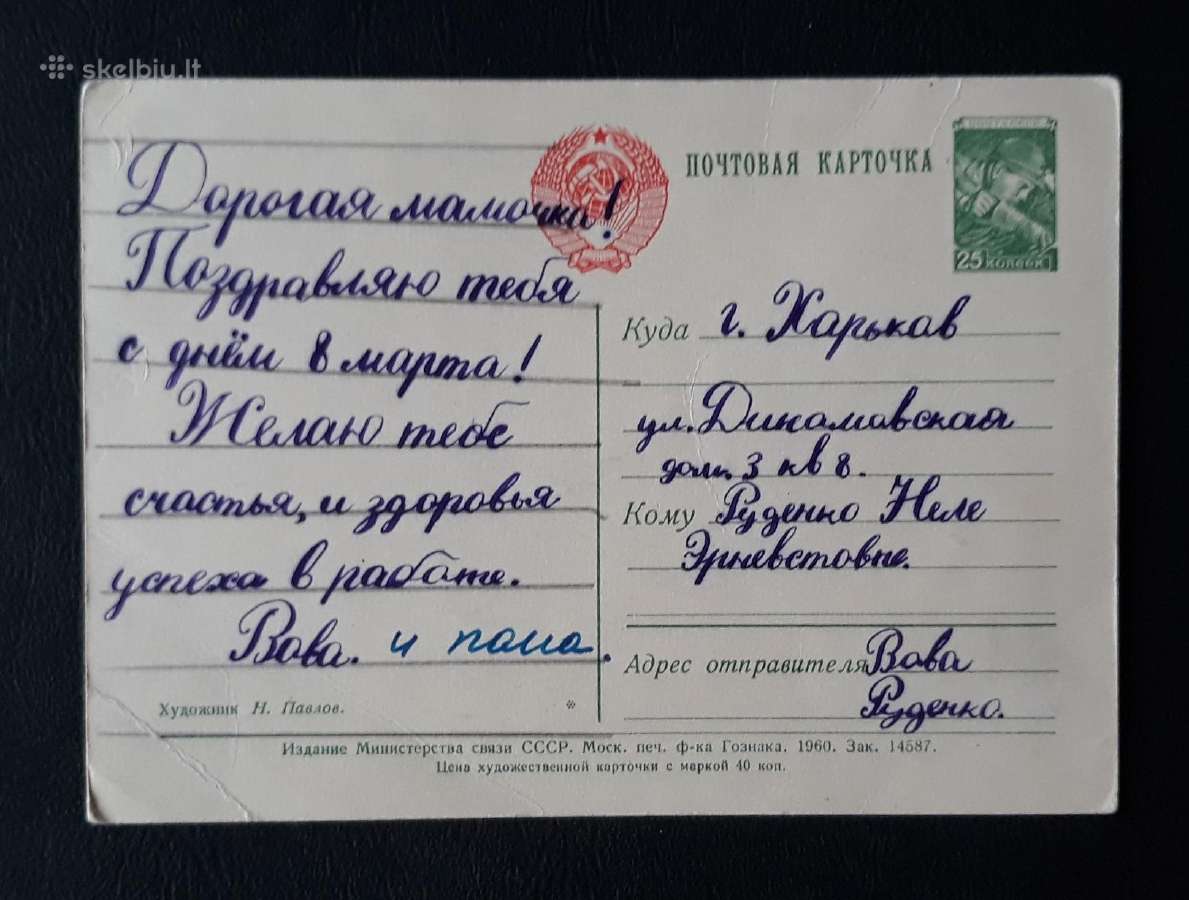 skelbiu.lt
ПОЧТОВАЯ КАРТОЧКА
25 КОПЕЕК
Дорогая мамочка!
Поздравляю тебя
с днём 8 марта!
Желаю тебе
счастья, и здоровья
успеха в работе.
Вова. и папа.
Художник Н. Павлов.
*
Куда г. Харьков
ул. Динамовская
дом. 3 кв 8.
Кому Руденко Неле
Адрес отправителя Вова
Руденко.
Издание Министерства связи СССР. Моск. печ. ф-ка Гознака. 1960. Зак. 14587.
Цена художественной карточки с маркой 40 коп.